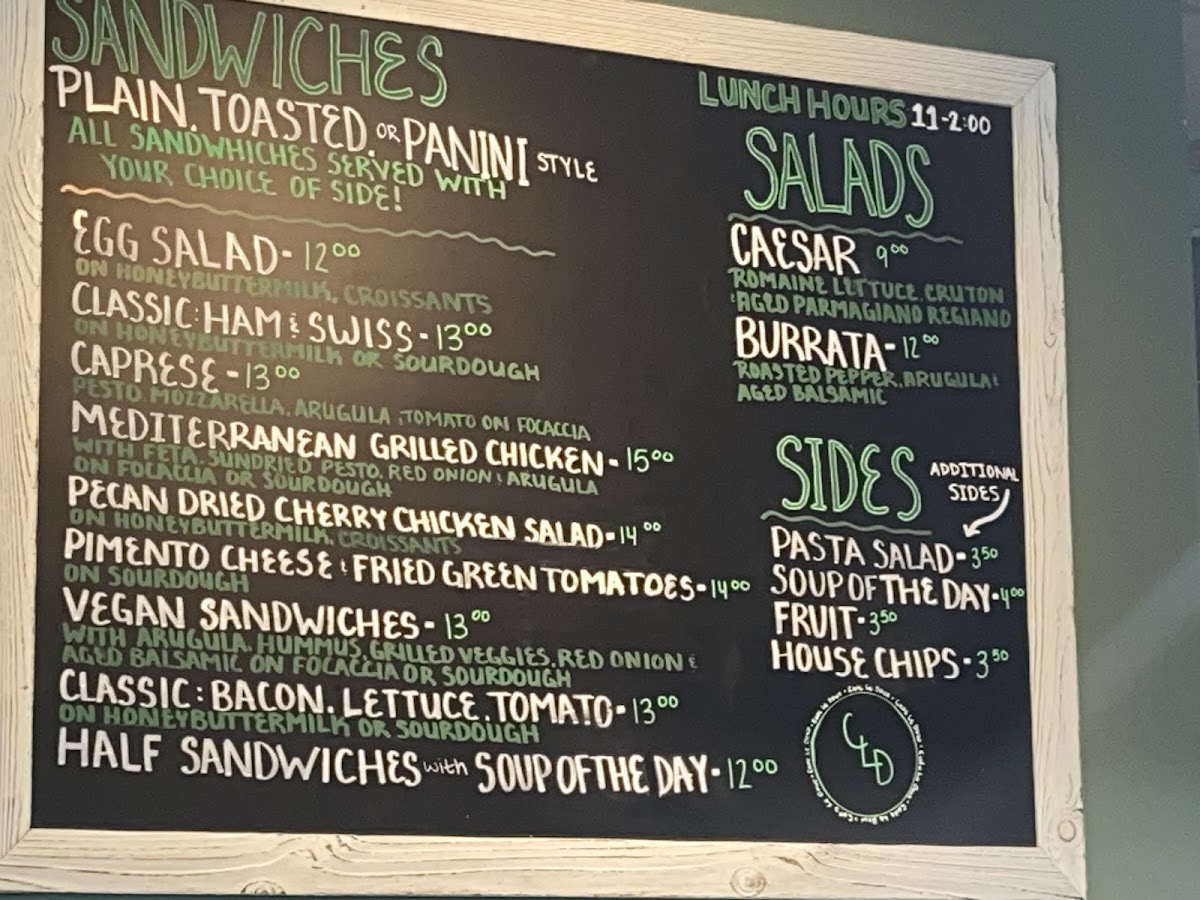 SANDWICHES
PLAIN, TOASTED, OR PANINI STYLE
ALL SANDWHICHES SERVED WITH
YOUR CHOICE OF SIDE!
EGG SALAD- 12⁰⁰
ON HONEYBUTTERMILK, CROISSANTS
CLASSIC: HAM & SWISS - 13⁰⁰
ON HONEYBUTTERMILK OR SOURDOUGH
CAPRESE - 13⁰⁰
PESTO, MOZZARELLA, ARUGULA, TOMATO ON FOCACCIA
MEDITERRANEAN GRILLED CHICKEN - 15⁰⁰
WITH FETA, SUNDRIED PESTO, RED ONION & ARUGULA
ON FOCACCIA OR SOURDOUGH
PECAN DRIED CHERRY CHICKEN SALAD- 14⁰⁰
ON HONEYBUTTERMILK, CROISSANTS
PIMENTO CHEESE & FRIED GREEN TOMATOES- 14⁰⁰
ON SOURDOUGH
VEGAN SANDWICHES - 13⁰⁰
WITH ARUGULA, HUMMUS, GRILLED VEGGIES, RED ONION &
AGED BALSAMIC ON FOCACCIA OR SOURDOUGH
CLASSIC: BACON, LETTUCE, TOMATO- 13⁰⁰
ON HONEYBUTTERMILK OR SOURDOUGH
HALF SANDWICHES with SOUP OF THE DAY- 12⁰⁰
LUNCH HOURS 11-2:00
SALADS
CAESAR 9⁰⁰
ROMAINE LETTUCE, CRUTON
& AGED PARMAGIANO REGIANO
BURRATA- 12⁰⁰
ROASTED PEPPER, ARUGULA &
AGED BALSAMIC
SIDES
ADDITIONAL
SIDES
PASTA SALAD- 3⁵⁰
SOUP OF THE DAY- 4⁰⁰
FRUIT- 3⁵⁰
HOUSE CHIPS - 3⁵⁰
CLD